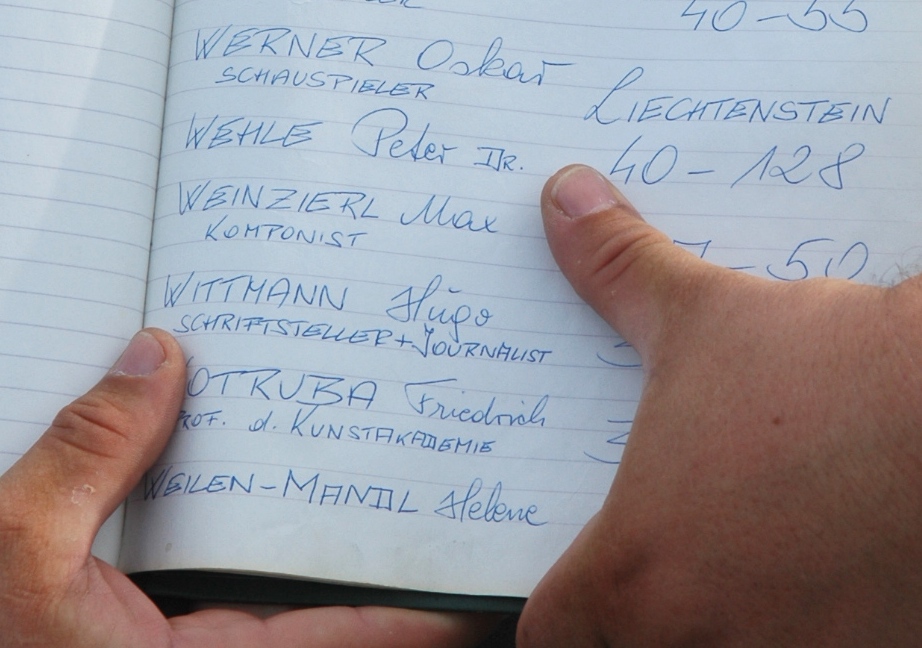 40-55
WERNER Oskar
SCHAUSPIELER
LIECHTENSTEIN
WEHLE Peter DR.
40-128
WEINZIERL Max
KOMPONIST
-50
WITTMANN Hugo
SCHRIFTSTELLER+JOURNALIST
OTRUBA Friedrich
PROF. d. KUNSTAKADEMIE
WEILEN-MANDL Helene